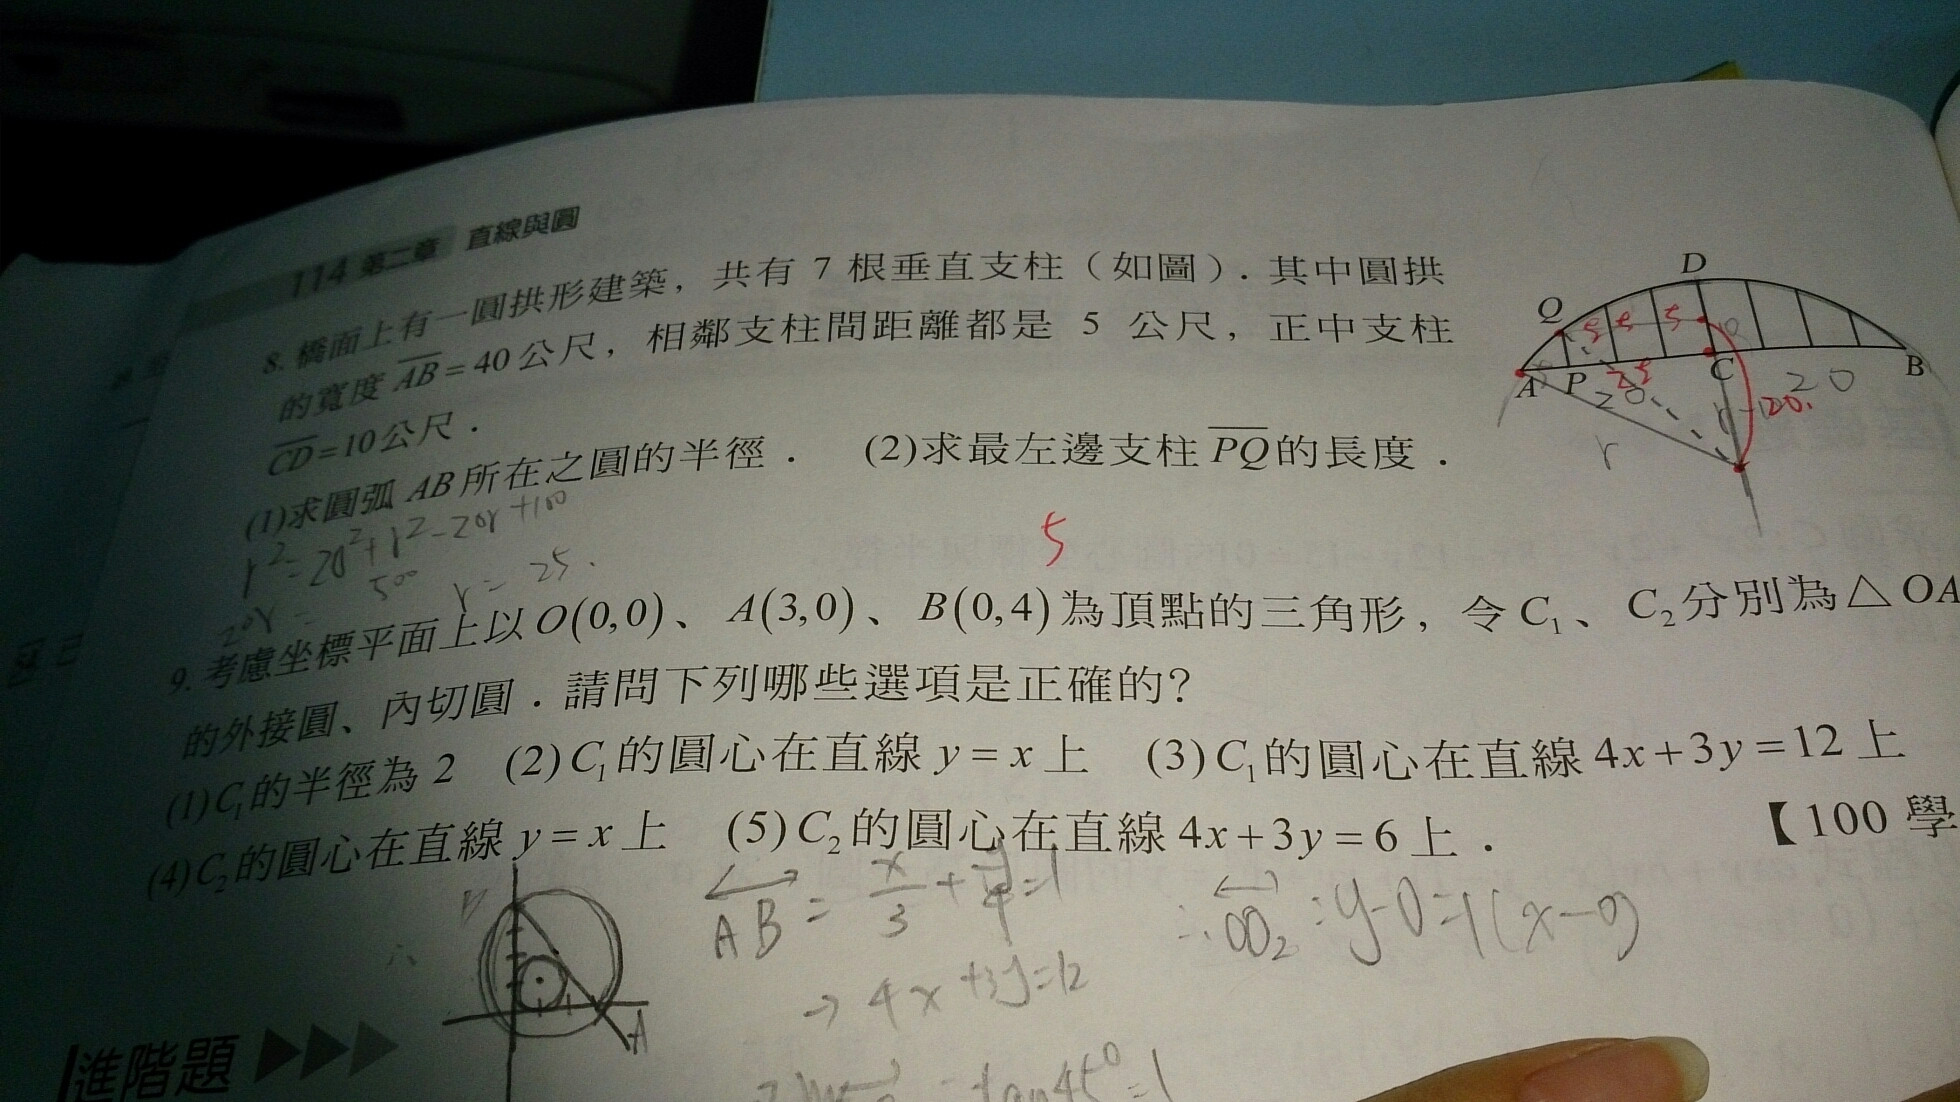 114 第二章 直線與圓
8. 橋面上有一圓拱形建築，共有 7 根垂直支柱（如圖）. 其中圓拱
的寬度 AB = 40 公尺，相鄰支柱間距離都是 5 公尺，正中支柱
CD = 10 公尺.
(1)求圓弧 AB 所在之圓的半徑. (2)求最左邊支柱 PQ 的長度.
D
Q
5 5 5
A P C B
25
20
20
20.
r
r² = 20² + r² - 20r + 100
20r = 500 r = 25.
5
9. 考慮坐標平面上以 O(0,0)、A(3,0)、B(0,4) 為頂點的三角形，令 C₁、C₂ 分別為 △OA
的外接圓、內切圓. 請問下列哪些選項是正確的?
(1)C₁的半徑為 2 (2)C₁的圓心在直線 y = x 上 (3)C₁的圓心在直線 4x+3y=12 上
(4)C₂的圓心在直線 y = x 上 (5)C₂的圓心在直線 4x+3y=6 上.
【100 學
AB = x/3 + y/4 = 1
∴ OO₂ : y-0=1(x-0)
→ 4x+3y=12
A
tan45°=1
進階題